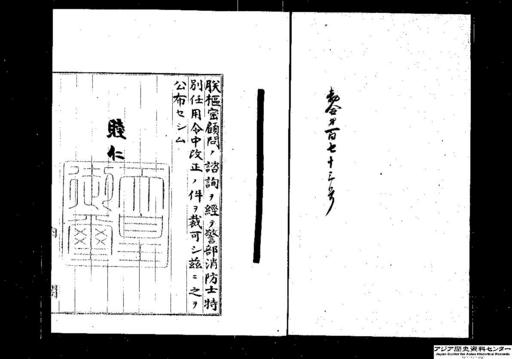 勅令第百七十三号
朕枢密顧問ノ諮詢ヲ経テ警部消防士特
別任用令中改正ノ件ヲ裁可シ茲ニ之ヲ
公布セシム
睦仁
天皇御璽
内閣
アジア歴史資料センター
Japan Center for Asian Historical Records